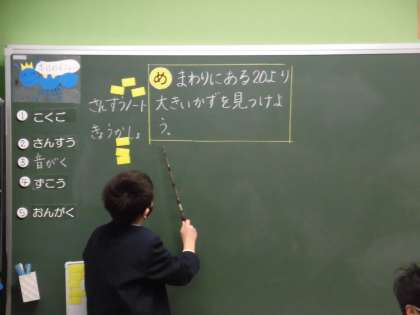 ① こくご
② さんすう
③ 音がく
④ ずこう
⑤ おんがく
さんすうノート
きょうかしょ
め まわりにある20より
大きいかずを見つけよ
う。